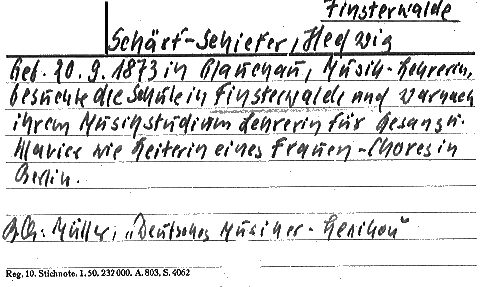 Finsterwalde
Schärf-Schiefer, Hedwig
Geb. 20. 9. 1873 in Glauchau, Musik-Lehrerin,
besuchte die Schule in Finsterwalde und war nach
ihrem Musikstudium Lehrerin für Gesang u.
Klavier wie Leiterin eines Frauen-Chores in
Berlin.
Müller, „Deutsches Musiker-Lexikon"
Reg. 10. Stichnote. 1. 50. 232 000. A. 803. S. 4062